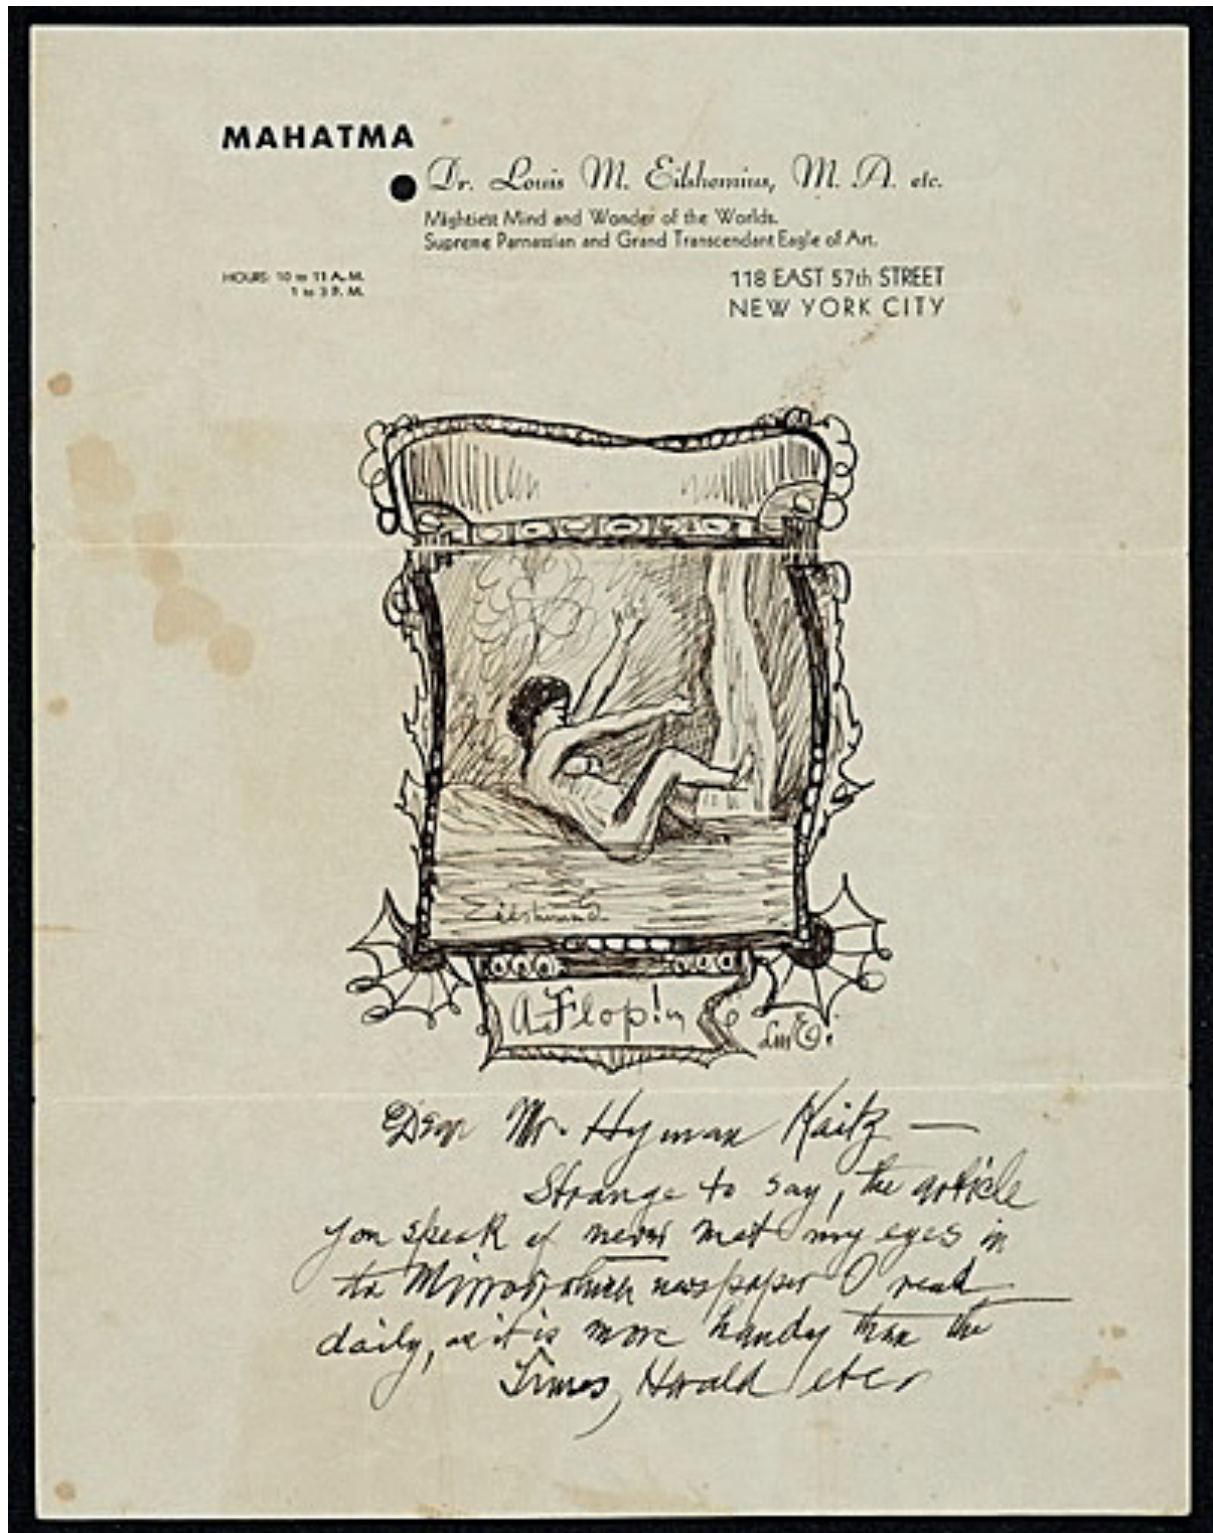 MAHATMA
Dr. Louis M. Eilshemius, M. A. etc.
Mightiest Mind and Wonder of the Worlds.
Supreme Parnassian and Grand Transcendant Eagle of Art.
HOURS: 10 to 11 A. M.
1 to 3 P. M.
118 EAST 57th STREET
NEW YORK CITY
A Flop!
Dear Mr. Hyman Kaitz —
Strange to say, the article
you speak of never met my eyes in
the Mirror, which newspaper I read
daily, as it is more handy than the
Times, Herald etc.